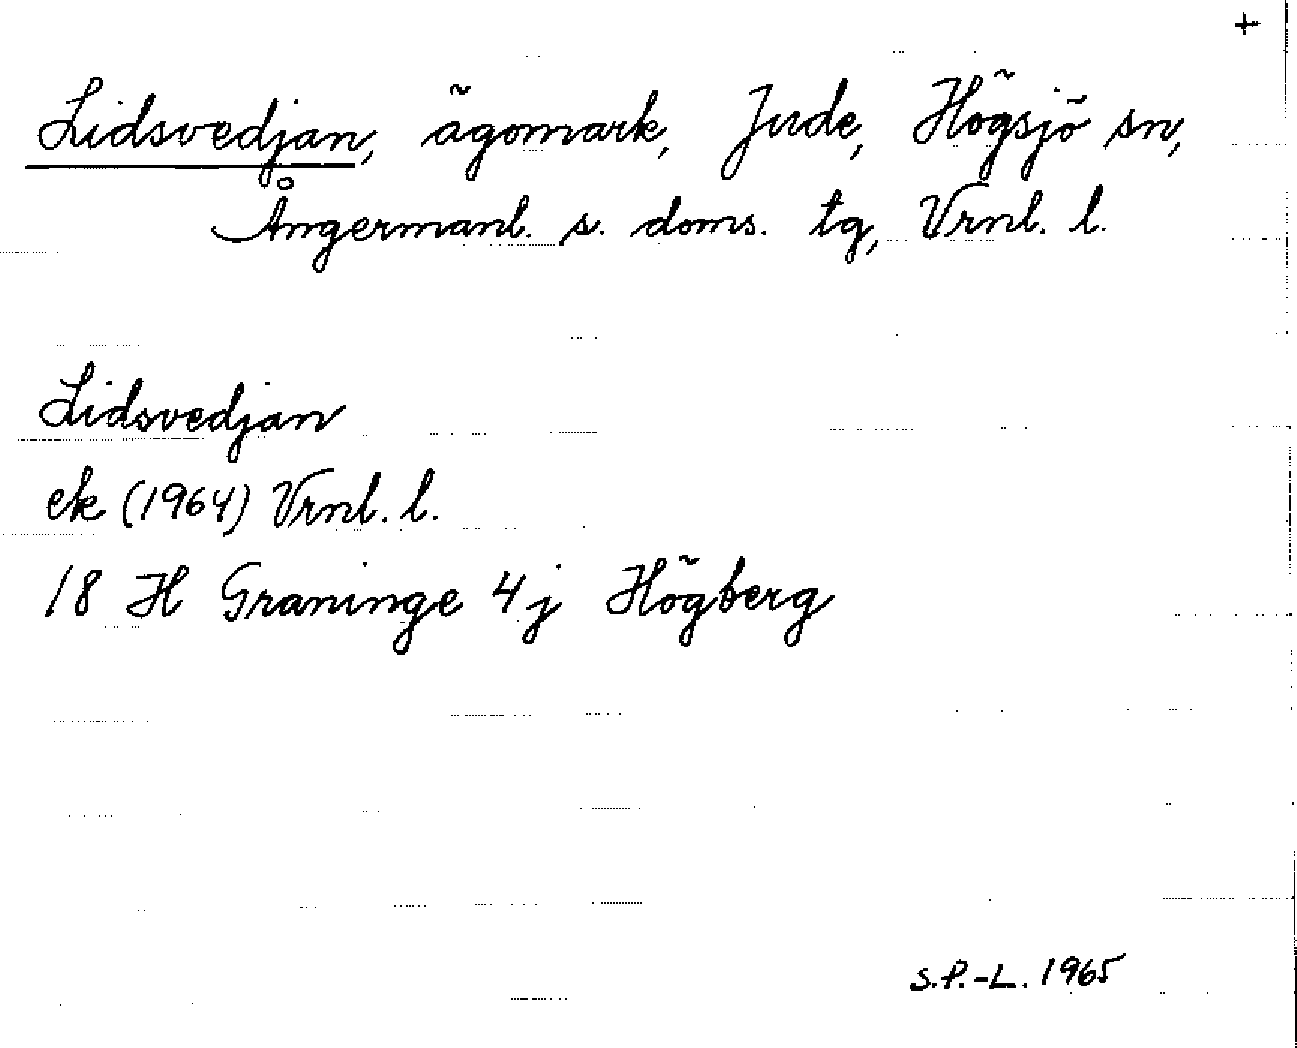 +
Lidsvedjan, ägomark, Jude, Högsjö sn,
Ångermanl. s. doms. tg, Vrnl. l.
Lidsvedjan
ek (1964) Vrnl. l.
18 H Graninge 4j Högberg
S.P.-L. 1965